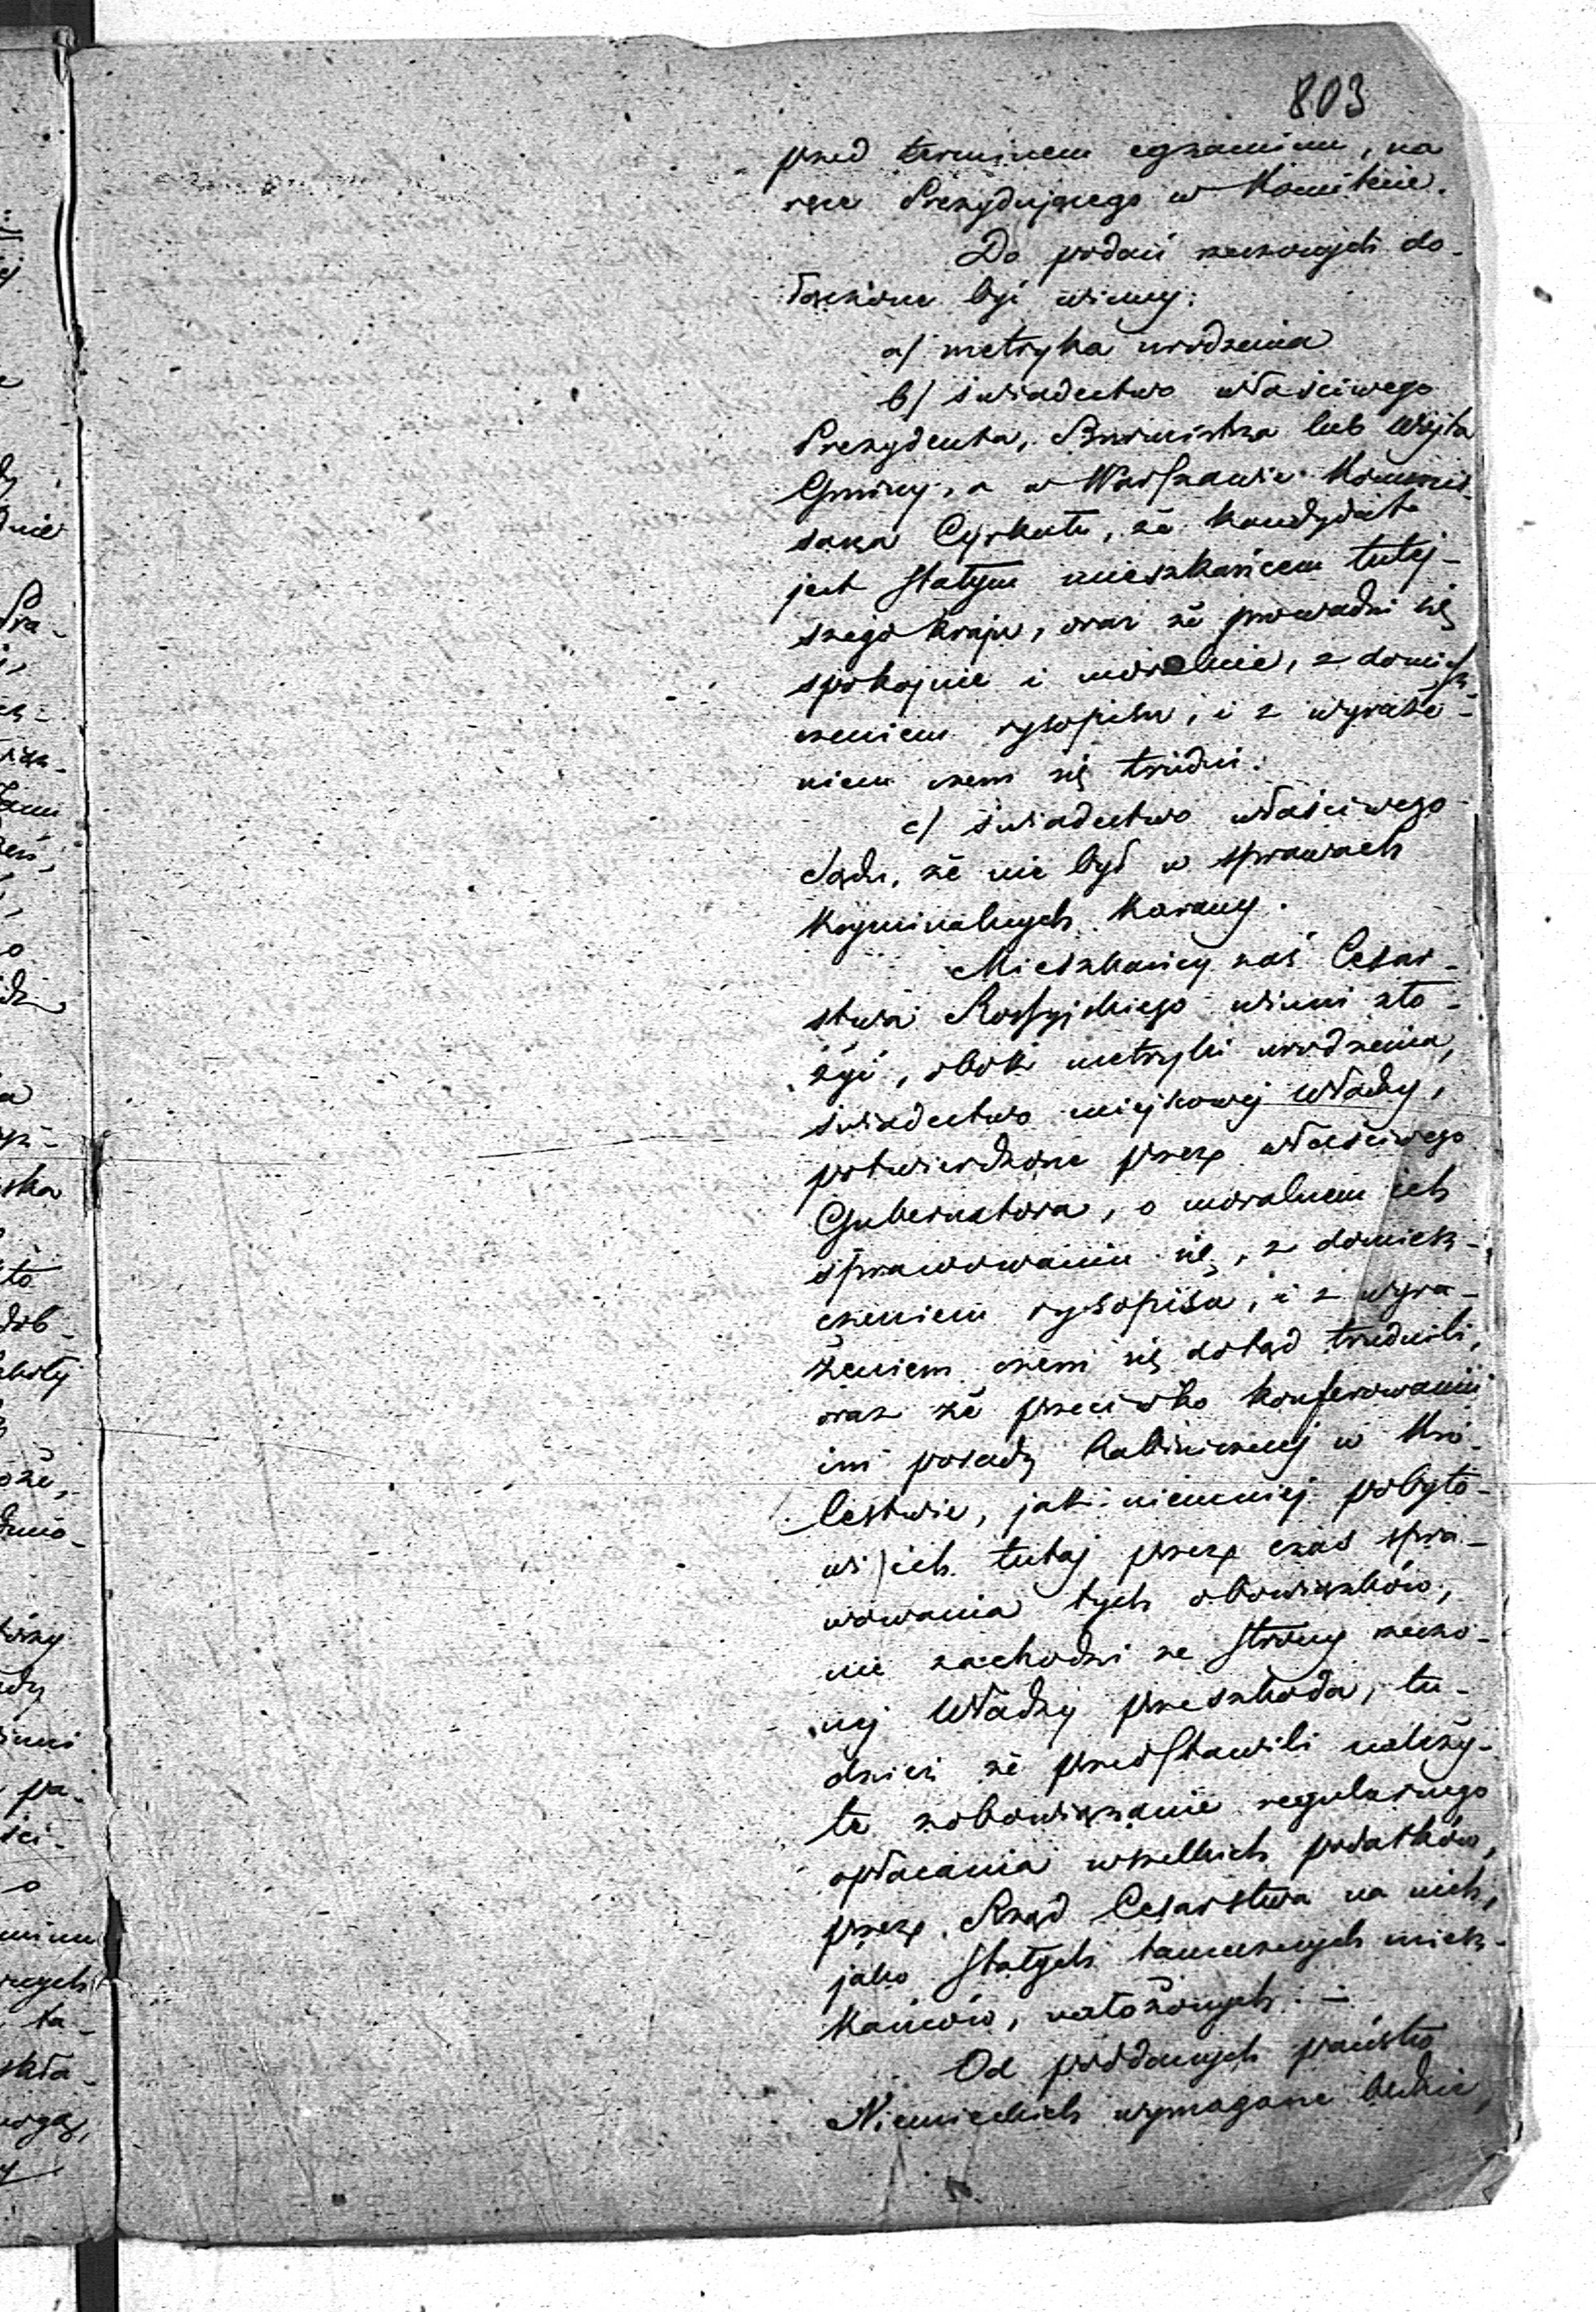 803
przed terminem egzaminu, na
ręce Prezydującego w Komitecie.
Do podań rzeczonych do-
łączone być winny:
a/ metryka urodzenia
b/ świadectwo właściwego
Prezydenta, Burmistrza lub Wójta
Gminy, a w Warszawie Kommis-
sarza Cyrkułu, że kandydat
jest stałym mieszkańcem tutej-
szego kraju, oraz że prowadzi się
spokojnie i moralnie, z domiesz-
czeniem rysopisu, i z wyraże-
niem czem się trudni.
c/ świadectwo właściwego
Sądu, że nie był w sprawach
kryminalnych karany.
Mieszkańcy zaś Cesar-
stwa Rossyjskiego winni zło-
żyć, obok metryki urodzenia,
świadectwo miejscowej Władzy,
potwierdzone przez właściwego
Gubernatora, o moralnem ich
sprawowaniu się, z domiesz-
czeniem rysopisu, i z wyra-
żeniem czem się dotąd trudnili,
oraz że przeciwko konferowaniu
im posady Rabinicznej w Kró-
lestwie, jak niemniej pobyto-
wi ich tutaj przez czas spra-
wowania tych obowiązków,
nie zachodzi ze strony rzeczo-
nej Władzy przeszkoda, tu-
dzież że przedstawili należy-
te zobowiązanie regularnego
opłacania wszelkich podatków,
przez Rząd Cesarstwa na nich,
jako stałych tamecznych miesz-
kańców, nałożonych. —
Od poddanych państw
Niemieckich wymagane będzie,